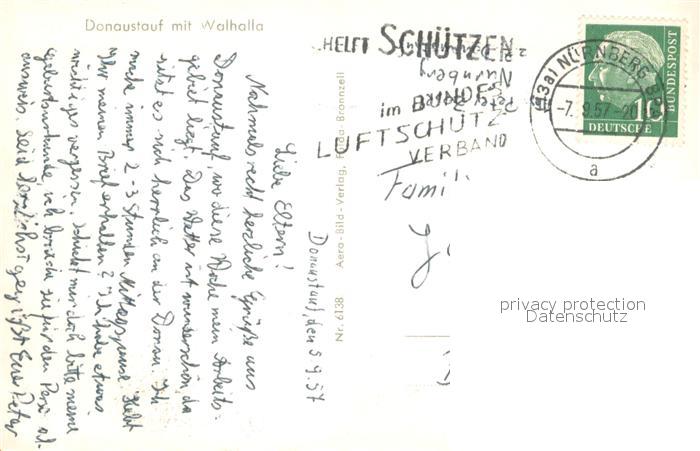 Donaustauf mit Walhalla
Donaustauf, den 5 9.57
Liebe Eltern!
Nochmals recht herzliche Grüße aus
Donaustauf, wo diese Woche mein Arbeits-
gebiet liegt. Das Wetter ist wunderschön, da
ist es noch herrlich an der Donau. Ich
mache immer 2-3 Stunden Mittagspause. Habt
Ihr meinen Brief erhalten? Ich habe etwas
wichtiges vergessen. Schickt mir doch bitte meine
Geburtsurkunde, ich brauche sie für den
ausweis. Seid herzlichst gegrüßt Euer Peter
Nr. 6138 Aero-Bild-Verlag, Fulda-Bronnzell
HELFT SCHÜTZEN
im BUNDES
LUFTSCHUTZ
VERBAND
Nürnberg
(13a) NÜRNBERG
-7. 9.57-20
a
10
DEUTSCHE
BUNDESPOST
Famil
privacy protection
Datenschutz